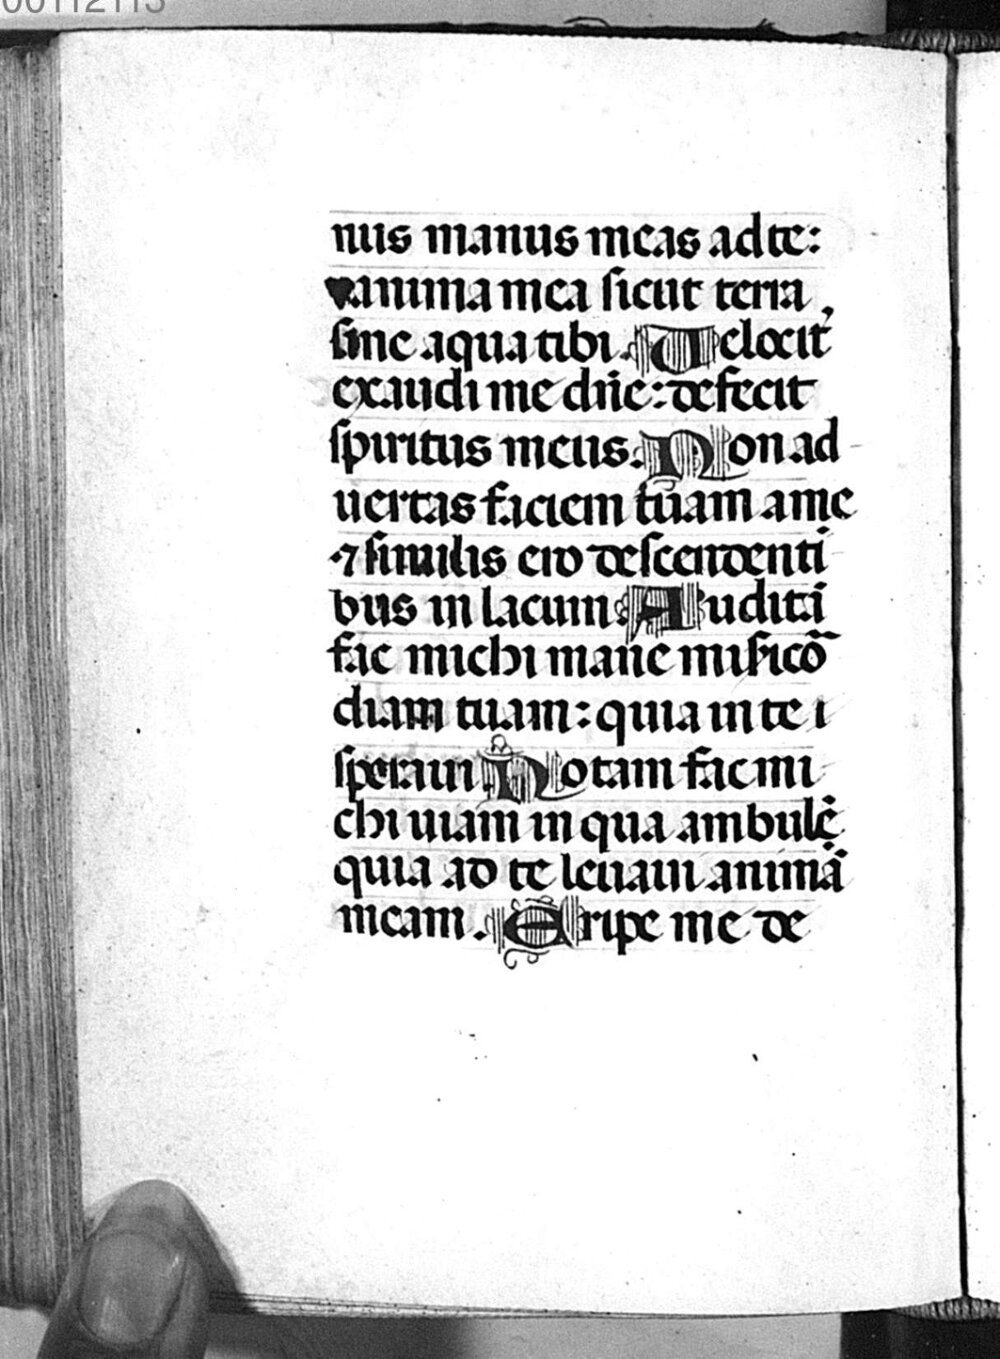 00112113
nus manus meas ad te:
anima mea sicut terra
sine aqua tibi. Uelocit᷑
exaudi me dñe: defecit
spiritus meus. Non ad
uertas faciem tuam a me
⁊ similis ero descendenti
bus in lacum. Auditã
fac michi mane misicõ
diam tuam: quia in te
speraui Notam fac mi
chi uiam in qua ambulẽ
quia ad te leuaui animã
meam. Eripe me de